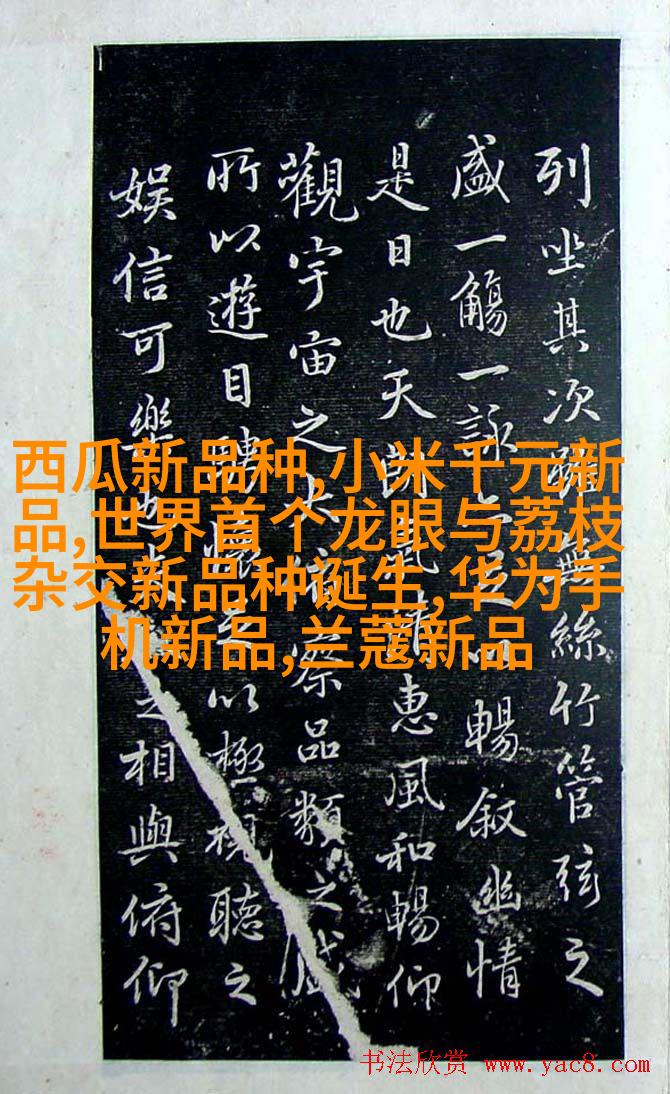 列坐其次雖無絲竹管弦之
盛一觴一詠足以暢敘幽情
是日也天朗氣清惠風和暢仰
觀宇宙之大俯察品類之盛
所以遊目騁懷足以極視聽之
娱信可樂也夫之相與俯仰
西瓜新品种,小米千元新
品,世界首个龙眼与荔枝
杂交新品种诞生,华为手
机新品,兰蔻新品
书法欣赏 www.yac8.com